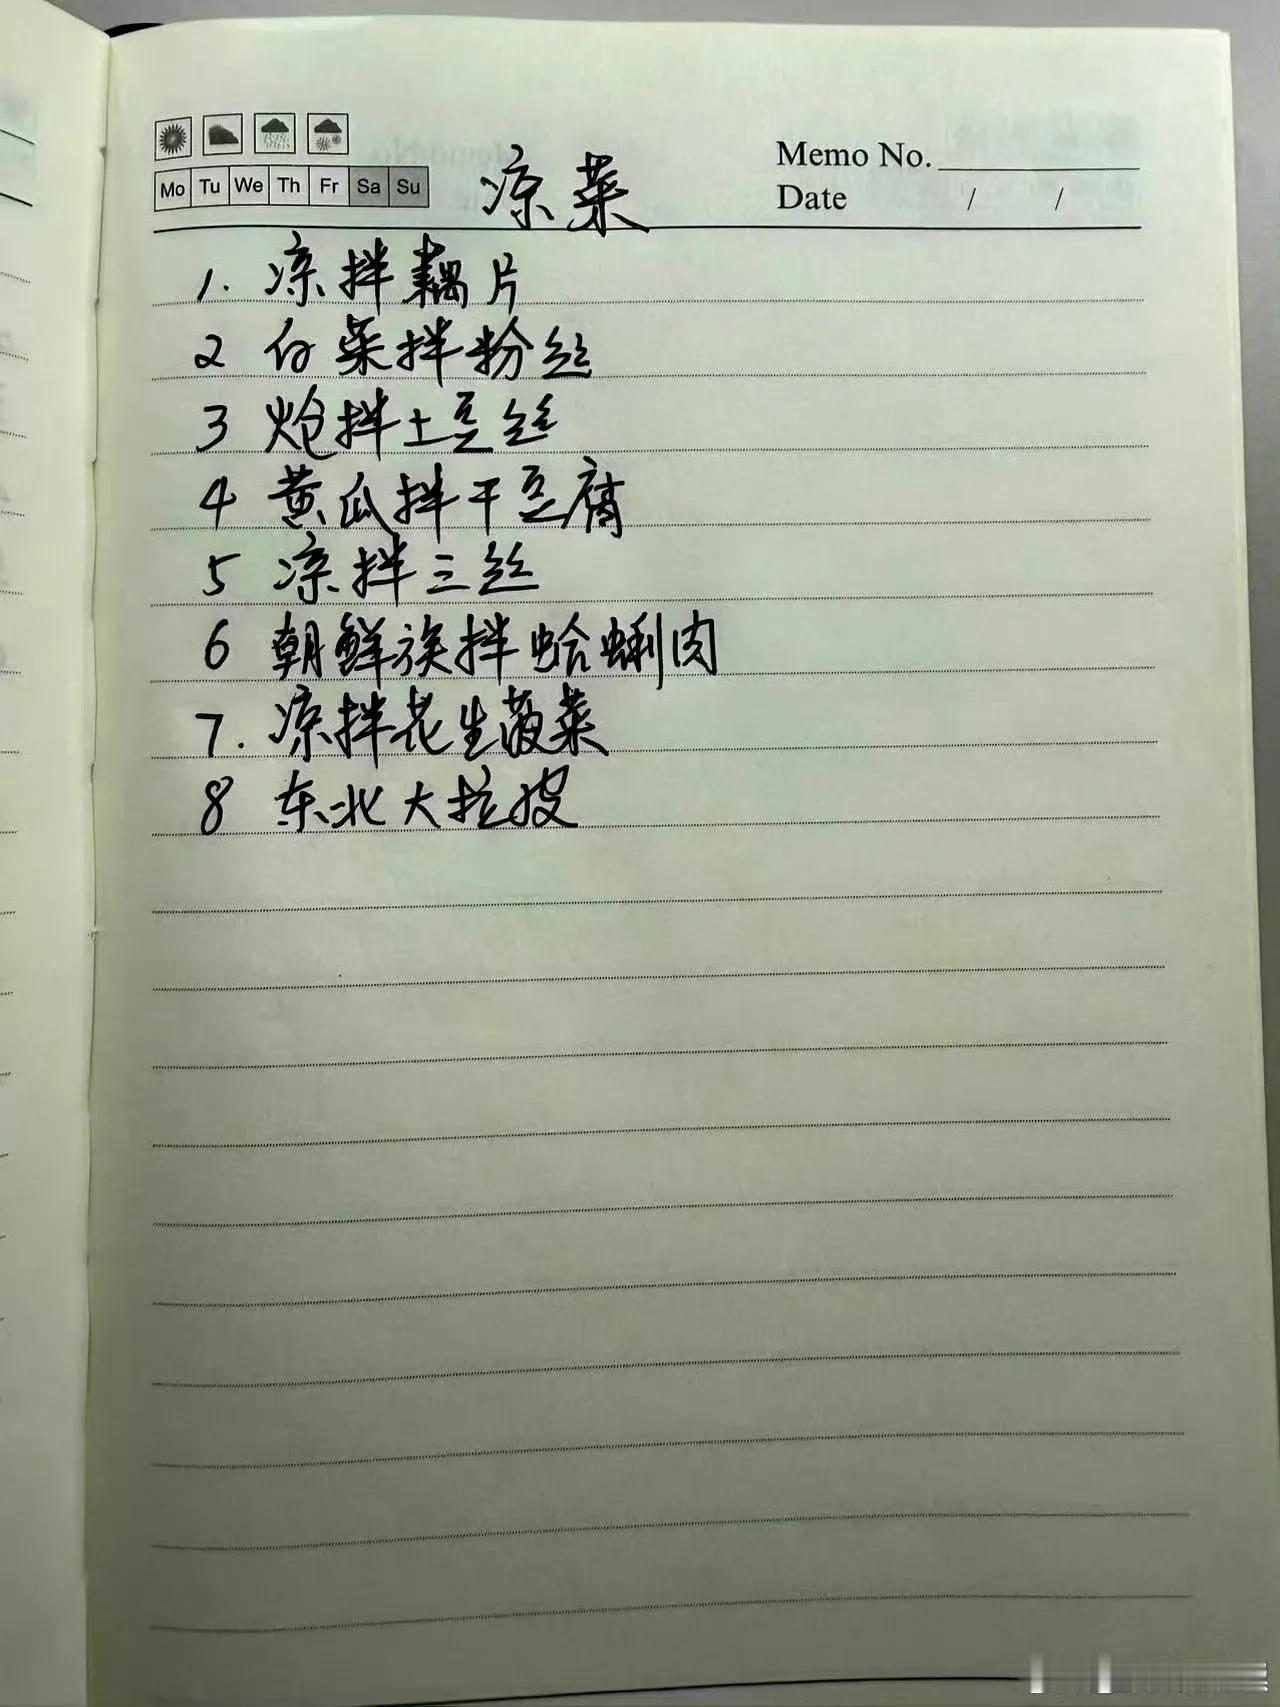 Mo Tu We Th Fr Sa Su
凉菜
Memo No.
Date / /
1. 凉拌藕片
2 白菜拌粉丝
3 炝拌土豆丝
4 黄瓜拌干豆腐
5 凉拌三丝
6 朝鲜族拌蛤蜊肉
7. 凉拌花生菠菜
8 东北大拉皮